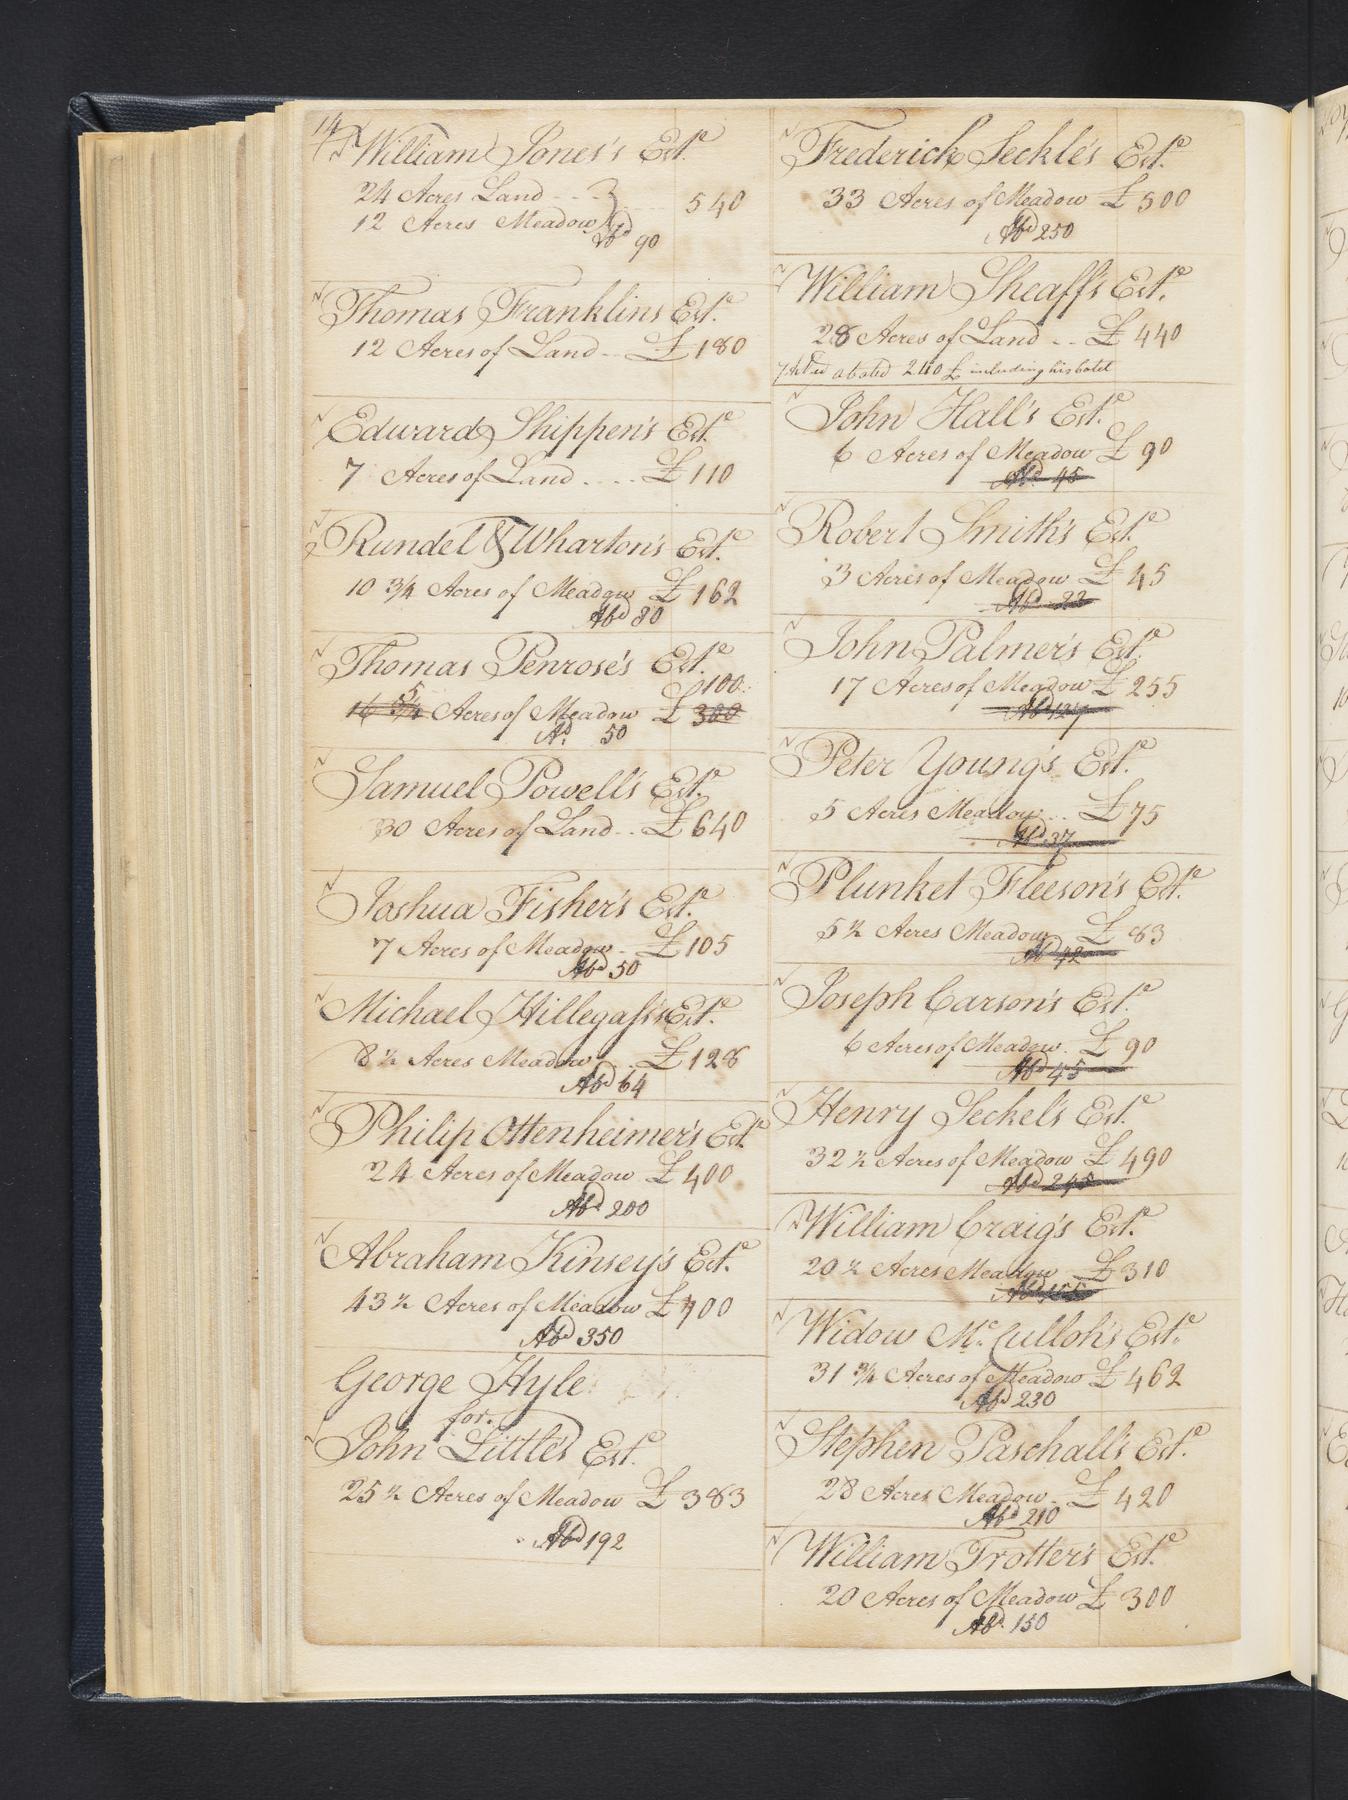 14
William Jones's Est.e
24 Acres Land - - -
12 Acres Meadow } 540
Ab.d 90
Thomas Franklins Est.e
12 Acres of Land - - £ 180
Edward Shippen's Est.e
7 Acres of Land . . . . £ 110
Rundel & Wharton's Est.e
10 3/4 Acres of Meadow £ 162
Ab.d 80
Thomas Penrose's Est.e
5 100
16 3/4 Acres of Meadow £ 300
A.d 50
Samuel Powell's Est.e
30 Acres of Land - - £ 640
Joshua Fisher's Est.e
7 Acres of Meadow - - £ 105
Ab.d 50
Michael Hillegass's Est.e
8 1/2 Acres Meadow . . £ 128
Ab.d 64
Philip Ottenheimer's Est.e
24 Acres of Meadow £ 400
Ab.d 200
Abraham Kinsey's Est.e
43 1/2 Acres of Meadow £ 700
Ab.d 350
George Hyle
for.
John Little's Est.e
25 1/2 Acres of Meadow £ 383
Ab.d 192
Frederick Seckle's Est.e
33 Acres of Meadow £ 500
Ab.d 250
William Sheaff's Est.e
28 Acres of Land - - £ 440
abated 240 £ including his hotel
John Hall's Est.e
6 Acres of Meadow £ 90
Ab.d 45
Robert Smith's Est.e
3 Acres of Meadow £ 45
Ab.d 22
John Palmer's Est.e
17 Acres of Meadow £ 255
Ab.d 127
Peter Young's Est.e
5 Acres Meadow . . £ 75
Ab.d 37
Plunket Fleeson's Est.e
5 1/2 Acres Meadow £ 83
Ab.d 42
Joseph Carson's Est.e
6 Acres of Meadow . £ 90
Ab.d 45
Henry Seckel's Est.e
32 1/2 Acres of Meadow £ 490
Ab.d 245
William Craig's Est.e
20 1/2 Acres Meadow £ 310
Ab.d 155
Widow Mc.Culloh's Est.e
31 3/4 Acres of Meadow £ 462
Ab.d 230
Stephen Paschall's Est.e
28 Acres Meadow - £ 420
Ab.d 210
William Trotter's Est.e
20 Acres of Meadow £ 300
Ab.d 150